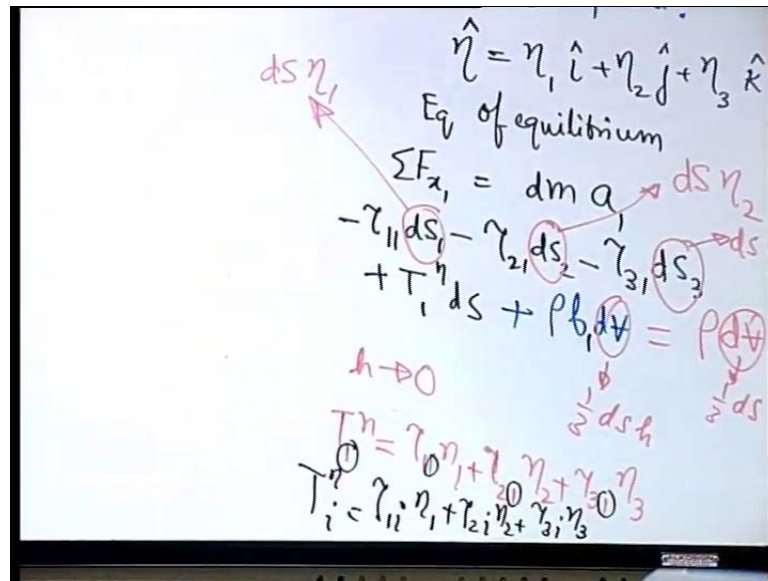 η̂ = η₁ î + η₂ ĵ + η₃ k̂
dS η₁
Eq of equilibrium
ΣFx₁ = dm a₁
dS η₂
-τ₁₁ dS₁ - τ₂₁ dS₂ - τ₃₁ dS₃
dS
+ T₁^η dS + ρb₁ dV = ρ dV
h → 0
1/3 dS h
1/3 dS
T₁^η = τ₁₁ η₁ + τ₂₁ η₂ + τ₃₁ η₃
Tᵢ^η = τ₁ᵢ η₁ + τ₂ᵢ η₂ + τ₃ᵢ η₃